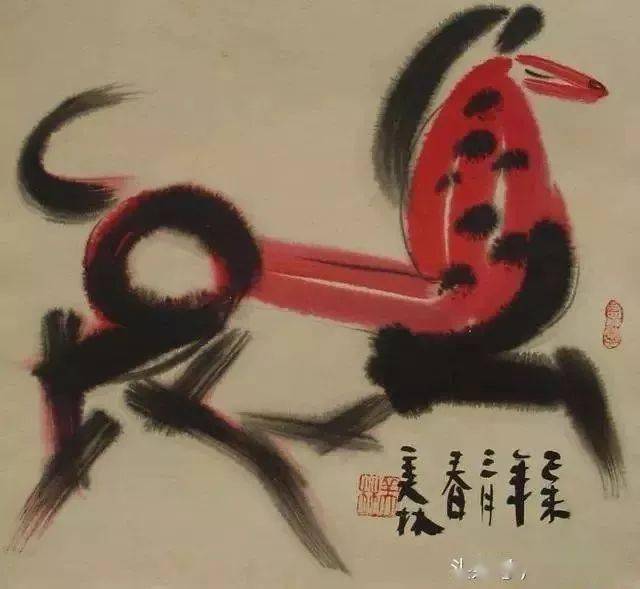 己未
年
三月
春
美林